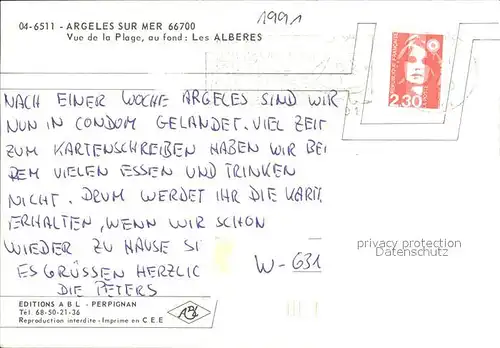 1991
04-6511 - ARGELES SUR MER 66700
Vue de la Plage, au fond: Les ALBERES
REPUBLIQUE FRANÇAISE
2,30
NACH EINER WOCHE ARGELES SIND WIR
NUN IN CONDOM GELANDET. VIEL ZEIT
ZUM KARTENSCHREIBEN HABEN WIR BEI
DEM VIELEN ESSEN UND TRINKEN
NICHT. DRUM WERDET IHR DIE KART
ERHALTEN, WENN WIR SCHON
WIEDER ZU HAUSE SI
ES GRÜSSEN HERZLIC
DIE PETERS
privacy protection
Datenschutz
W-631
EDITIONS A B L - PERPIGNAN
Tél. 68-50-21-36
Reproduction interdite - Imprimé en C.E.E
ABL